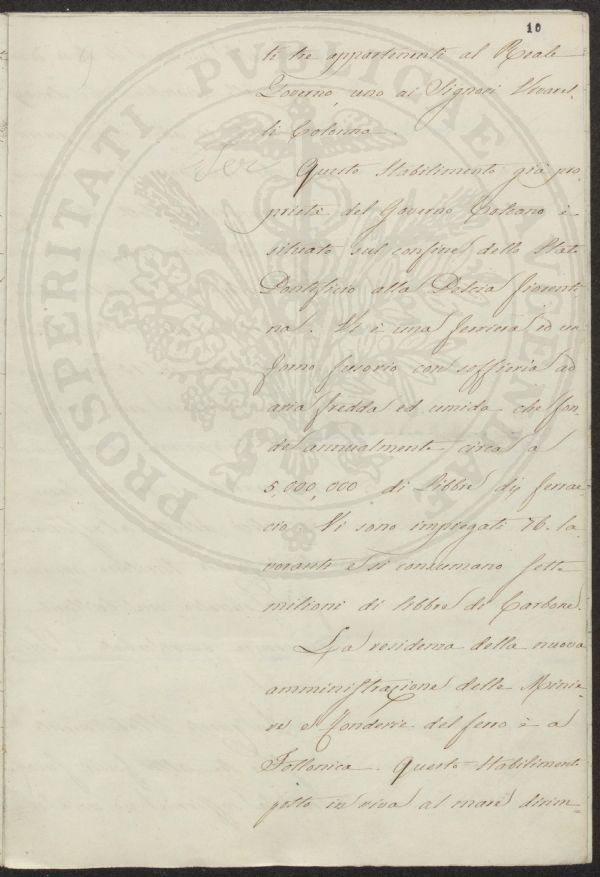 10
ti tre appartenenti al Reale
Governo, uno ai Signori Vivarel-
li Colonna.
Questo Stabilimento già pro
prietà del Governo Toscano è
situato sul confine dello Stato
Pontificio alla Pescia fiorenti
na. Vi è una ferriera ed un
forno fusorio con soffieria ad
aria fredda ed umida che fon
de annualmente circa a
5,000,000 di libbre di ferrac
cio. Vi sono impiegati 76. la
voranti e si consumano sette
milioni di libbre di Carbone.
La residenza della nuova
amministrazione delle Minie
re e Fonderie del ferro è a
Follonica. Questo Stabilimento
posto in riva al mare dirim=
PROSPERITATI PUBLICAE AUGENDAE